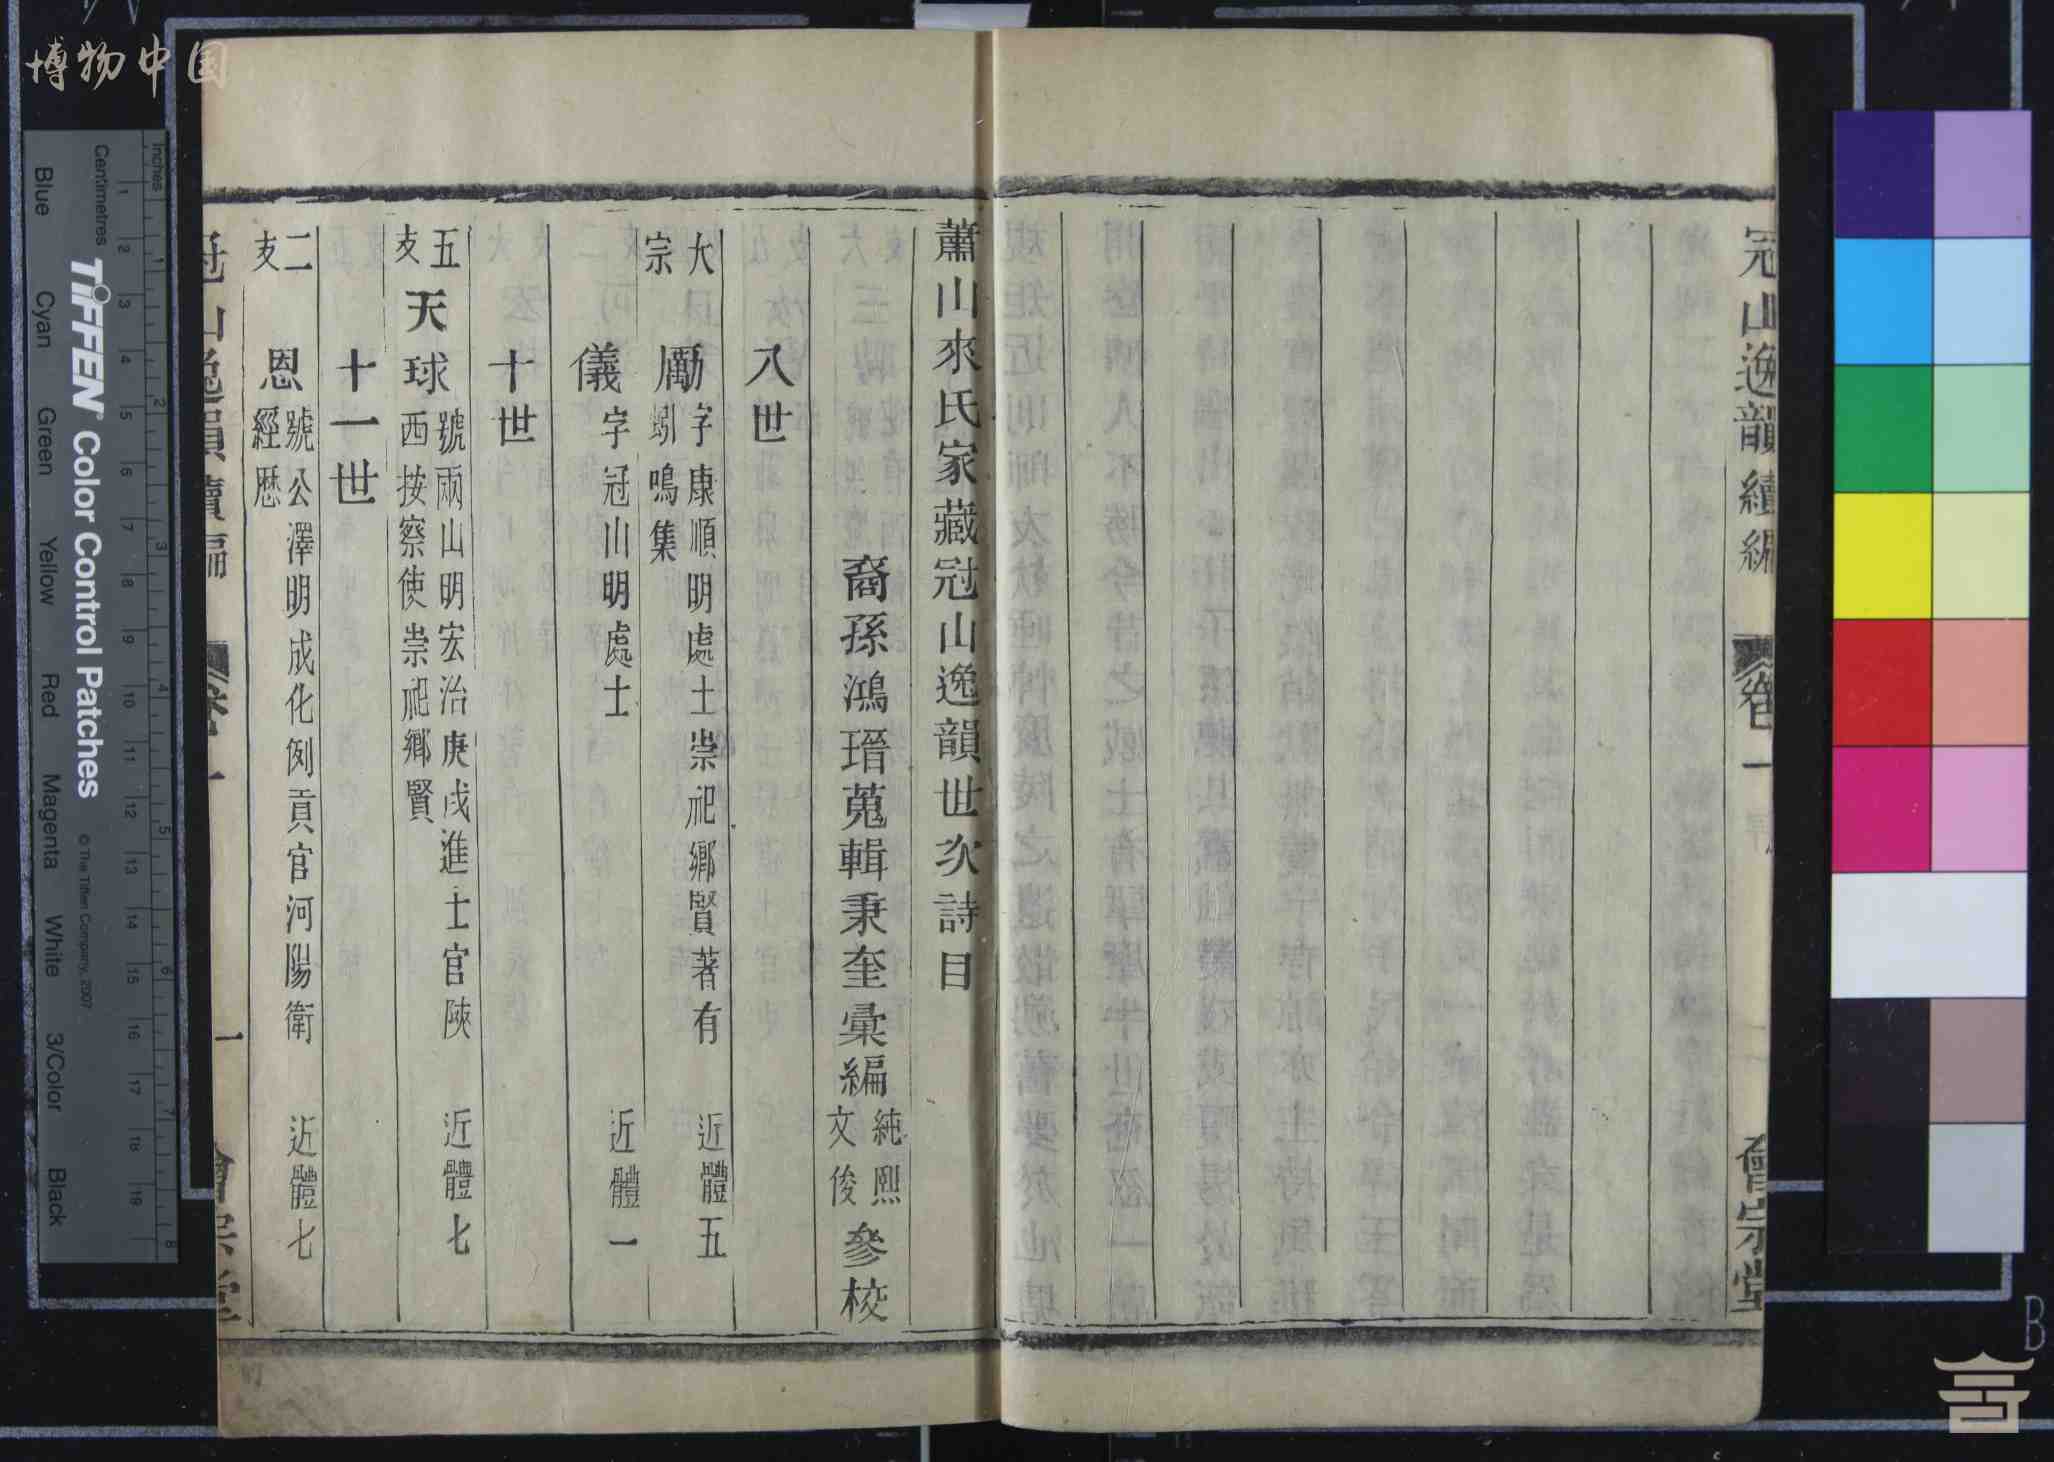 博物中国
冠山逸韻續編
卷一
會宗堂
蕭山來氏家藏冠山逸韻世次詩目
裔孫鴻瑨蒐輯秉奎彙編純熙文俊參校
八世
大宗
勵
字康順明處士崇祀鄉賢著有
蚓鳴集
近體五
儀
字冠山明處士
近體一
十世
五支
天球
號兩山明宏治庚戌進士官陝
西按察使崇祀鄉賢
近體七
十一世
二支
恩
號公澤明成化例貢官河陽衛
經歷
近體七
冠山逸韻續編
卷一
一
會宗堂
Inches
Centimetres
TIFFEN Color Control Patches
© The Tiffen Company, 2007
Blue
Cyan
Green
Yellow
Red
Magenta
White
3/Color
Black
1
2
3
4
5
6
7
8
9
10
11
12
13
14
15
16
17
18
19
1
2
3
4
5
6
7
8
B